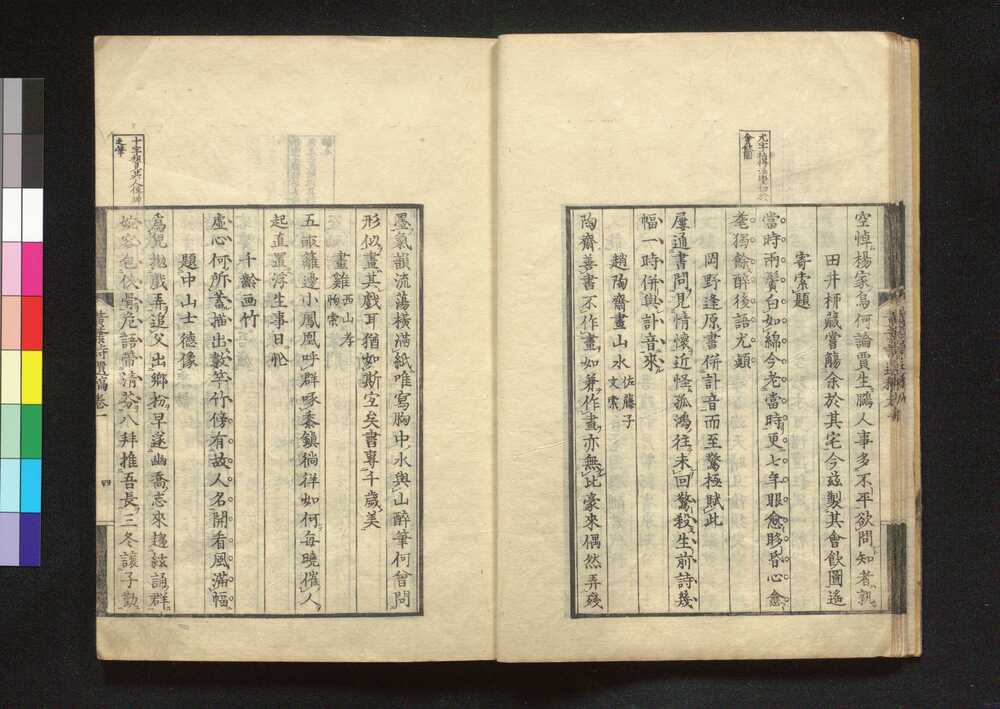 空悼楊家烏何論賈生鵩人事多不平欲問知者孰
田井抒藏嘗觴余於其宅今茲製其會飲圖遙
寄索題
當時兩鬢白如綿今老當時更七年眼愈眵昏心愈
耄獨餘醉後語尤顛
岡野逢原書併訃音而至驚極賦此
屢通書問見情懷近怪孤鴻往未回驚殺生前詩幾
幅一時併與訃音來
趙陶齋畫山水 佐藤子文索
陶齋善書不作畫如兼作畫亦無此豪來偶然弄殘
墨氣韻流蕩橫滿紙唯寫胸中水與山醉筆何曾問
形似畫其戲耳猶如斯宜矣書專千歲美
畫雞 西山孝恂索
五畝蘺邊小鳳凰呼群啄黍鎮徜徉如何每曉催人
起直置浮生事日忙
千齡画竹
虛心何所蓄描出數竿竹傍有故人名開看風滿幅
題中山士德像
為兒挑戲弄追父出鄉枌早遂幽喬志來趨絃誦群
婉容包俠骨危語帶清芬八拜推吾長三冬讓子勤
十字
之肇
四